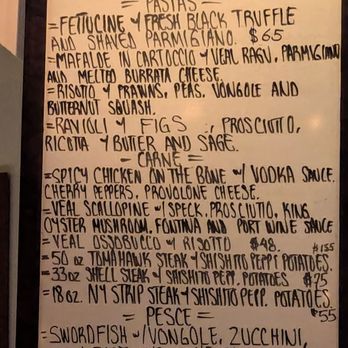 = PASTAS =
= FETTUCINE w/ FRESH BLACK TRUFFLE
AND SHAVED PARMIGIANO. $65
= MAFALDE IN CARTOCCIO w/ VEAL RAGU, PARMIGIANO
AND MELTED BURRATA CHEESE.
= RISOTTO w/ PRAWNS, PEAS, VONGOLE AND
BUTTERNUT SQUASH.
= RAVIOLI w/ FIGS , PROSCIUTTO,
RICOTTA w/ BUTTER AND SAGE.
= CARNE =
= SPICY CHICKEN ON THE BONE w/ VODKA SAUCE,
CHERRY PEPPERS, PROVOLONE CHEESE.
= VEAL SCALLOPINE w/ SPECK, PROSCIUTTO, KING
OYSTER MUSHROOM, FONTINA AND PORT WINE SAUCE
= VEAL OSSOBUCCO w/ RISOTTO $48. $155
= 50 oz TOMAHAWK STEAK w/ SHISHITO PEPP. POTATOES.
= 33oz SHELL STEAK w/ SHISHITO PEPP. POTATOES $75
= 18oz. NY STRIP STEAK w/ SHISHITO PEPP. POTATOES.
$55
= PESCE =
= SWORDFISH w/ VONGOLE, ZUCCHINI,